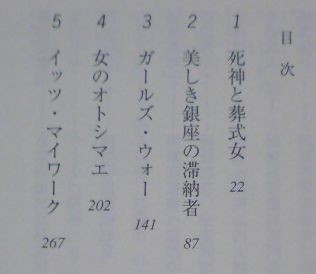 目次
1 死神と葬式女 22
2 美しき銀座の滞納者 87
3 ガールズ・ウォー 141
4 女のオトシマエ 202
5 イッツ・マイワーク 267